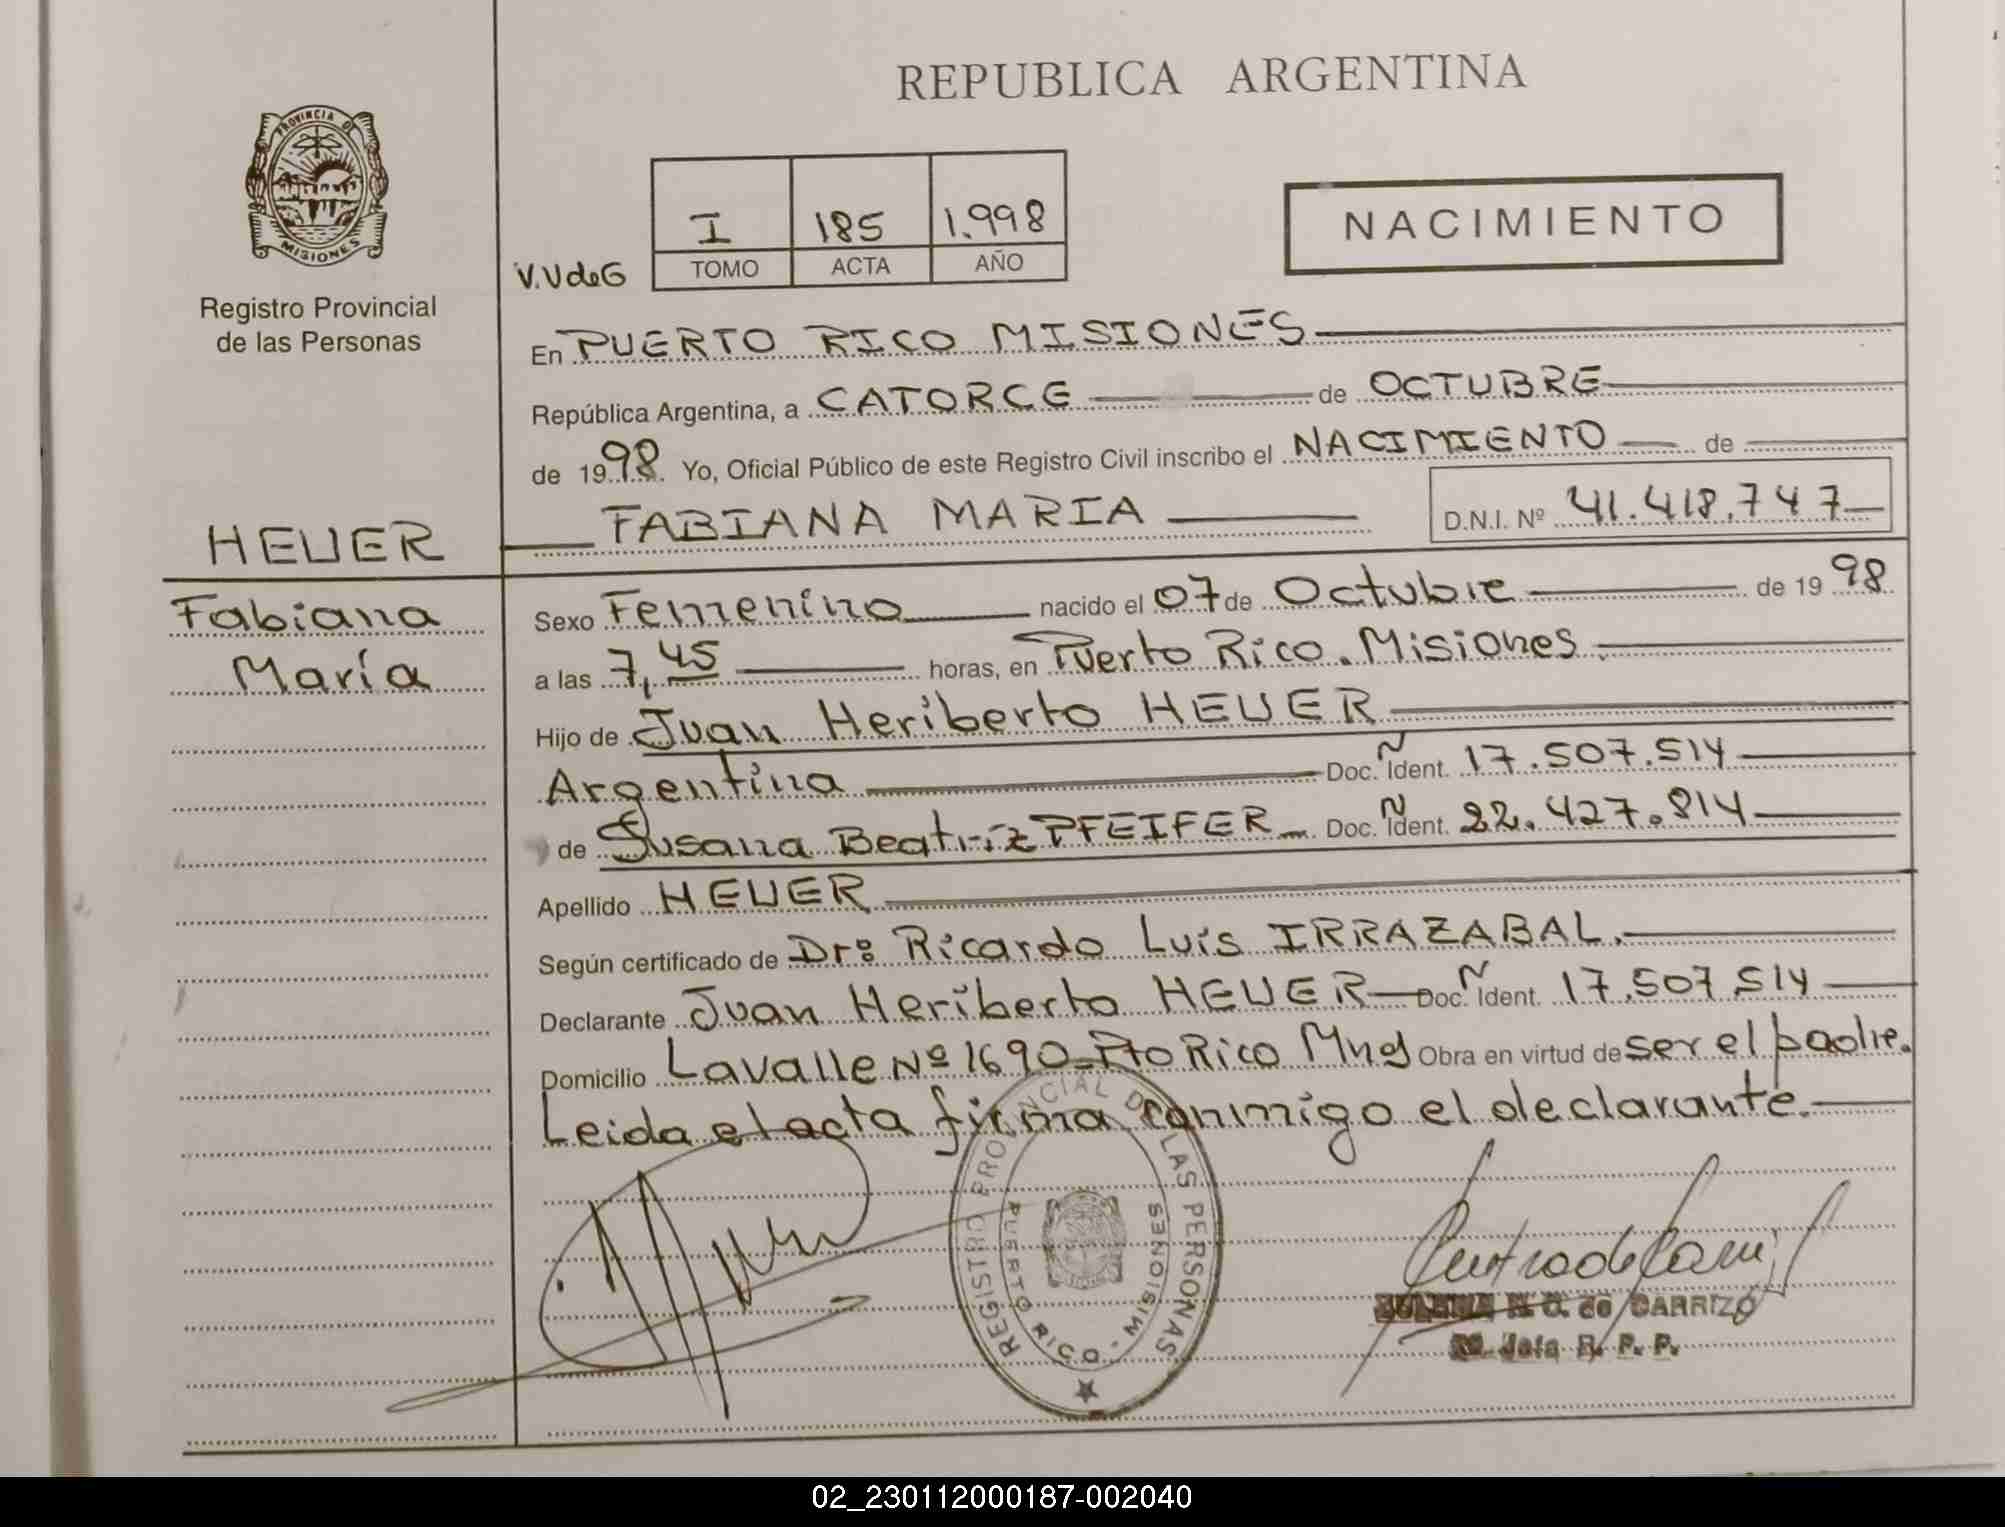 REPUBLICA ARGENTINA
PROVINCIA DE
MISIONES
Registro Provincial
de las Personas
I 185 1.998
V.V de G TOMO ACTA AÑO
NACIMIENTO
En PUERTO RICO MISIONES
República Argentina, a CATORCE de OCTUBRE
de 1998. Yo, Oficial Público de este Registro Civil inscribo el NACIMIENTO de
FABIANA MARIA D.N.I. Nº 41.418.747
HEUER
Fabiana
María
Sexo Femenino nacido el 07 de Octubre de 1998
a las 7,45 horas, en Puerto Rico. Misiones
Hijo de Juan Heriberto HEUER
Argentina Doc. Ñ Ident. 17.507.514
de Susana Beatriz PFEIFER Doc. Ñ Ident. 22.427.814
Apellido HEUER
Según certificado de Dr: Ricardo Luis IRRAZABAL.
Declarante Juan Heriberto HEUER Doc. Ñ Ident. 17.507.514
Domicilio Lavalle Nº 1690 - Pto Rico Mnes Obra en virtud de ser el padre.
Leida el acta firma conmigo el declarante.
REGISTRO PROVINCIAL DE LAS PERSONAS
PUERTO RICO - MISIONES
N. C. de CARRIZO
Jefa R. P. P.
02_230112000187-002040